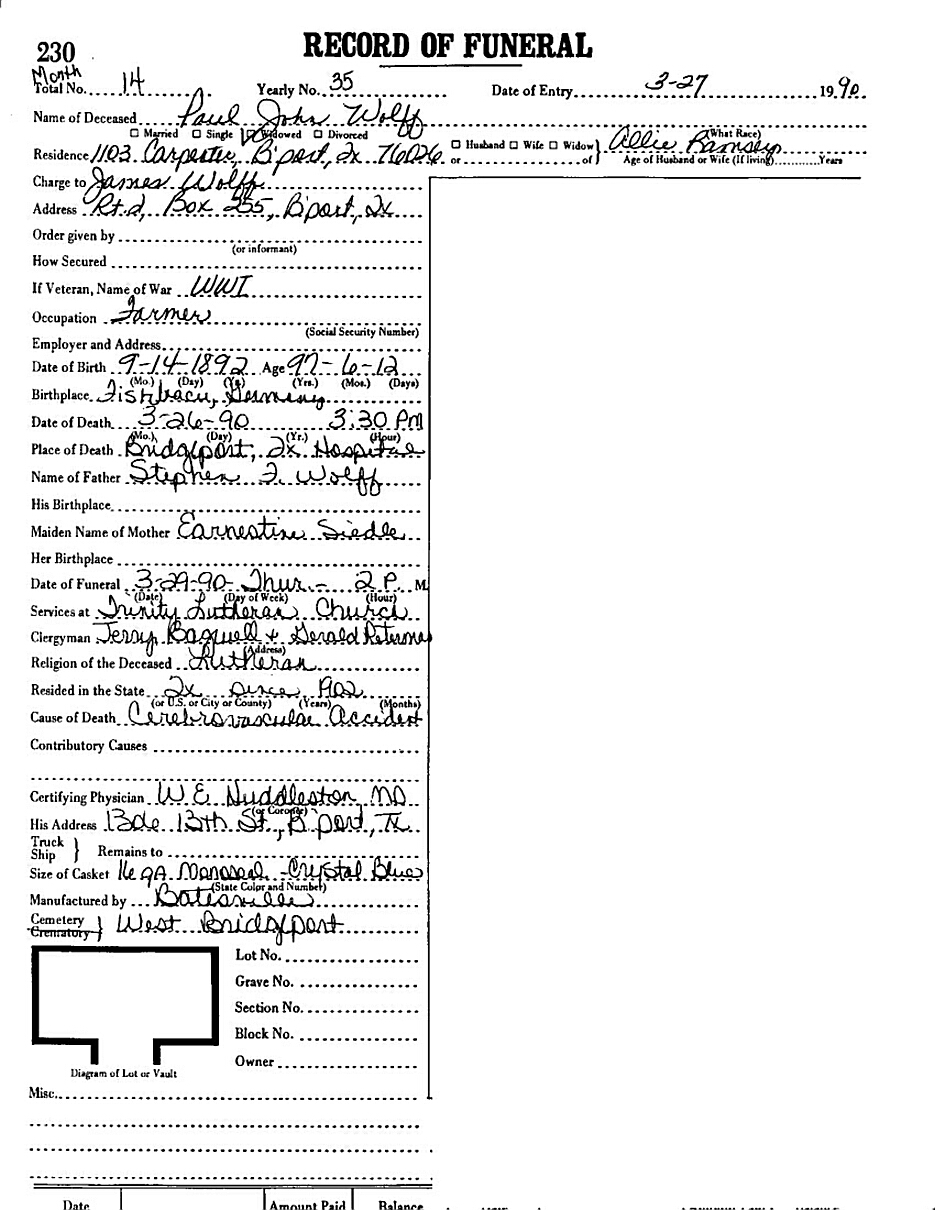 230
RECORD OF FUNERAL
Month
Total No. 14 Yearly No. 35 Date of Entry 3-27 1990
Name of Deceased Paul John Wolff
(What Race)
☐ Married ☐ Single ☑ Widowed ☐ Divorced
☐ Husband ☐ Wife ☐ Widow } Allie Ramsey
Residence 1103 Carpenter, B'port, Tx 76026 or of Age of Husband or Wife (If living) Years
Charge to James Wolff
Address Rt. 2, Box 255, B'port, Tx
Order given by
(or informant)
How Secured
If Veteran, Name of War WWI
Occupation Farmer
(Social Security Number)
Employer and Address
Date of Birth 9-14-1892 Age 97-6-12
(Mo.) (Day) (Yr.) (Yrs.) (Mos.) (Days)
Birthplace Germany
Date of Death 3-26-90 3:30 PM
(Mo.) (Day) (Yr.) (Hour)
Place of Death Bridgeport, Tx Hospital
Name of Father Stephen F. Wolff
His Birthplace
Maiden Name of Mother Earnestine Siedle
Her Birthplace
Date of Funeral 3-29-90- Thur.- 2 P. M
(Date) (Day of Week) (Hour)
Services at Trinity Lutheran Church
Clergyman Jerry Bagwell + Gerald
(Address)
Religion of the Deceased Lutheran
Resided in the State Tx since 1902
(or U.S. or City or County) (Years) (Months)
Cause of Death Cerebrovascular Accident
Contributory Causes
Certifying Physician W E Huddleston MD
(or Coroner)
His Address 13th St., B'port, Tx
Truck
Ship } Remains to
Size of Casket 16 ga Monoseal - Crystal Blue
(State Color and Number)
Manufactured by Batesville
Cemetery
Crematory } West Bridgeport
Lot No.
Grave No.
Section No.
Block No.
Owner
Diagram of Lot or Vault
Misc.
Date Amount Paid Balance